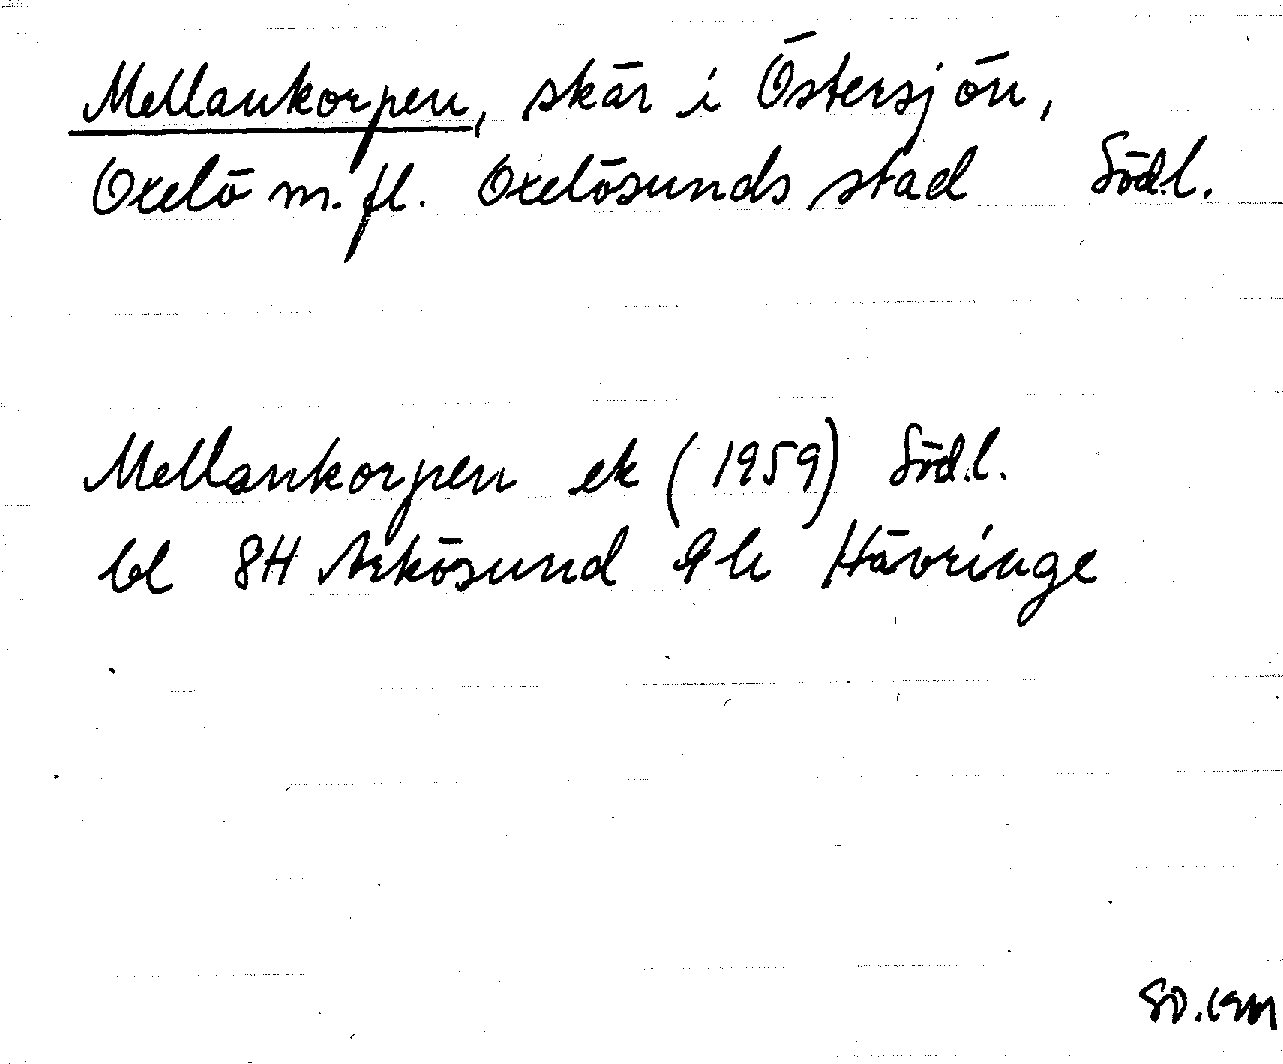 Mellankorpen, skär i Östersjön,
Oxelö m.fl. Oxelösunds stad Södl.
Mellankorpen ek (1959) Södl.
bl 8H Arkösund 9h Hävringe